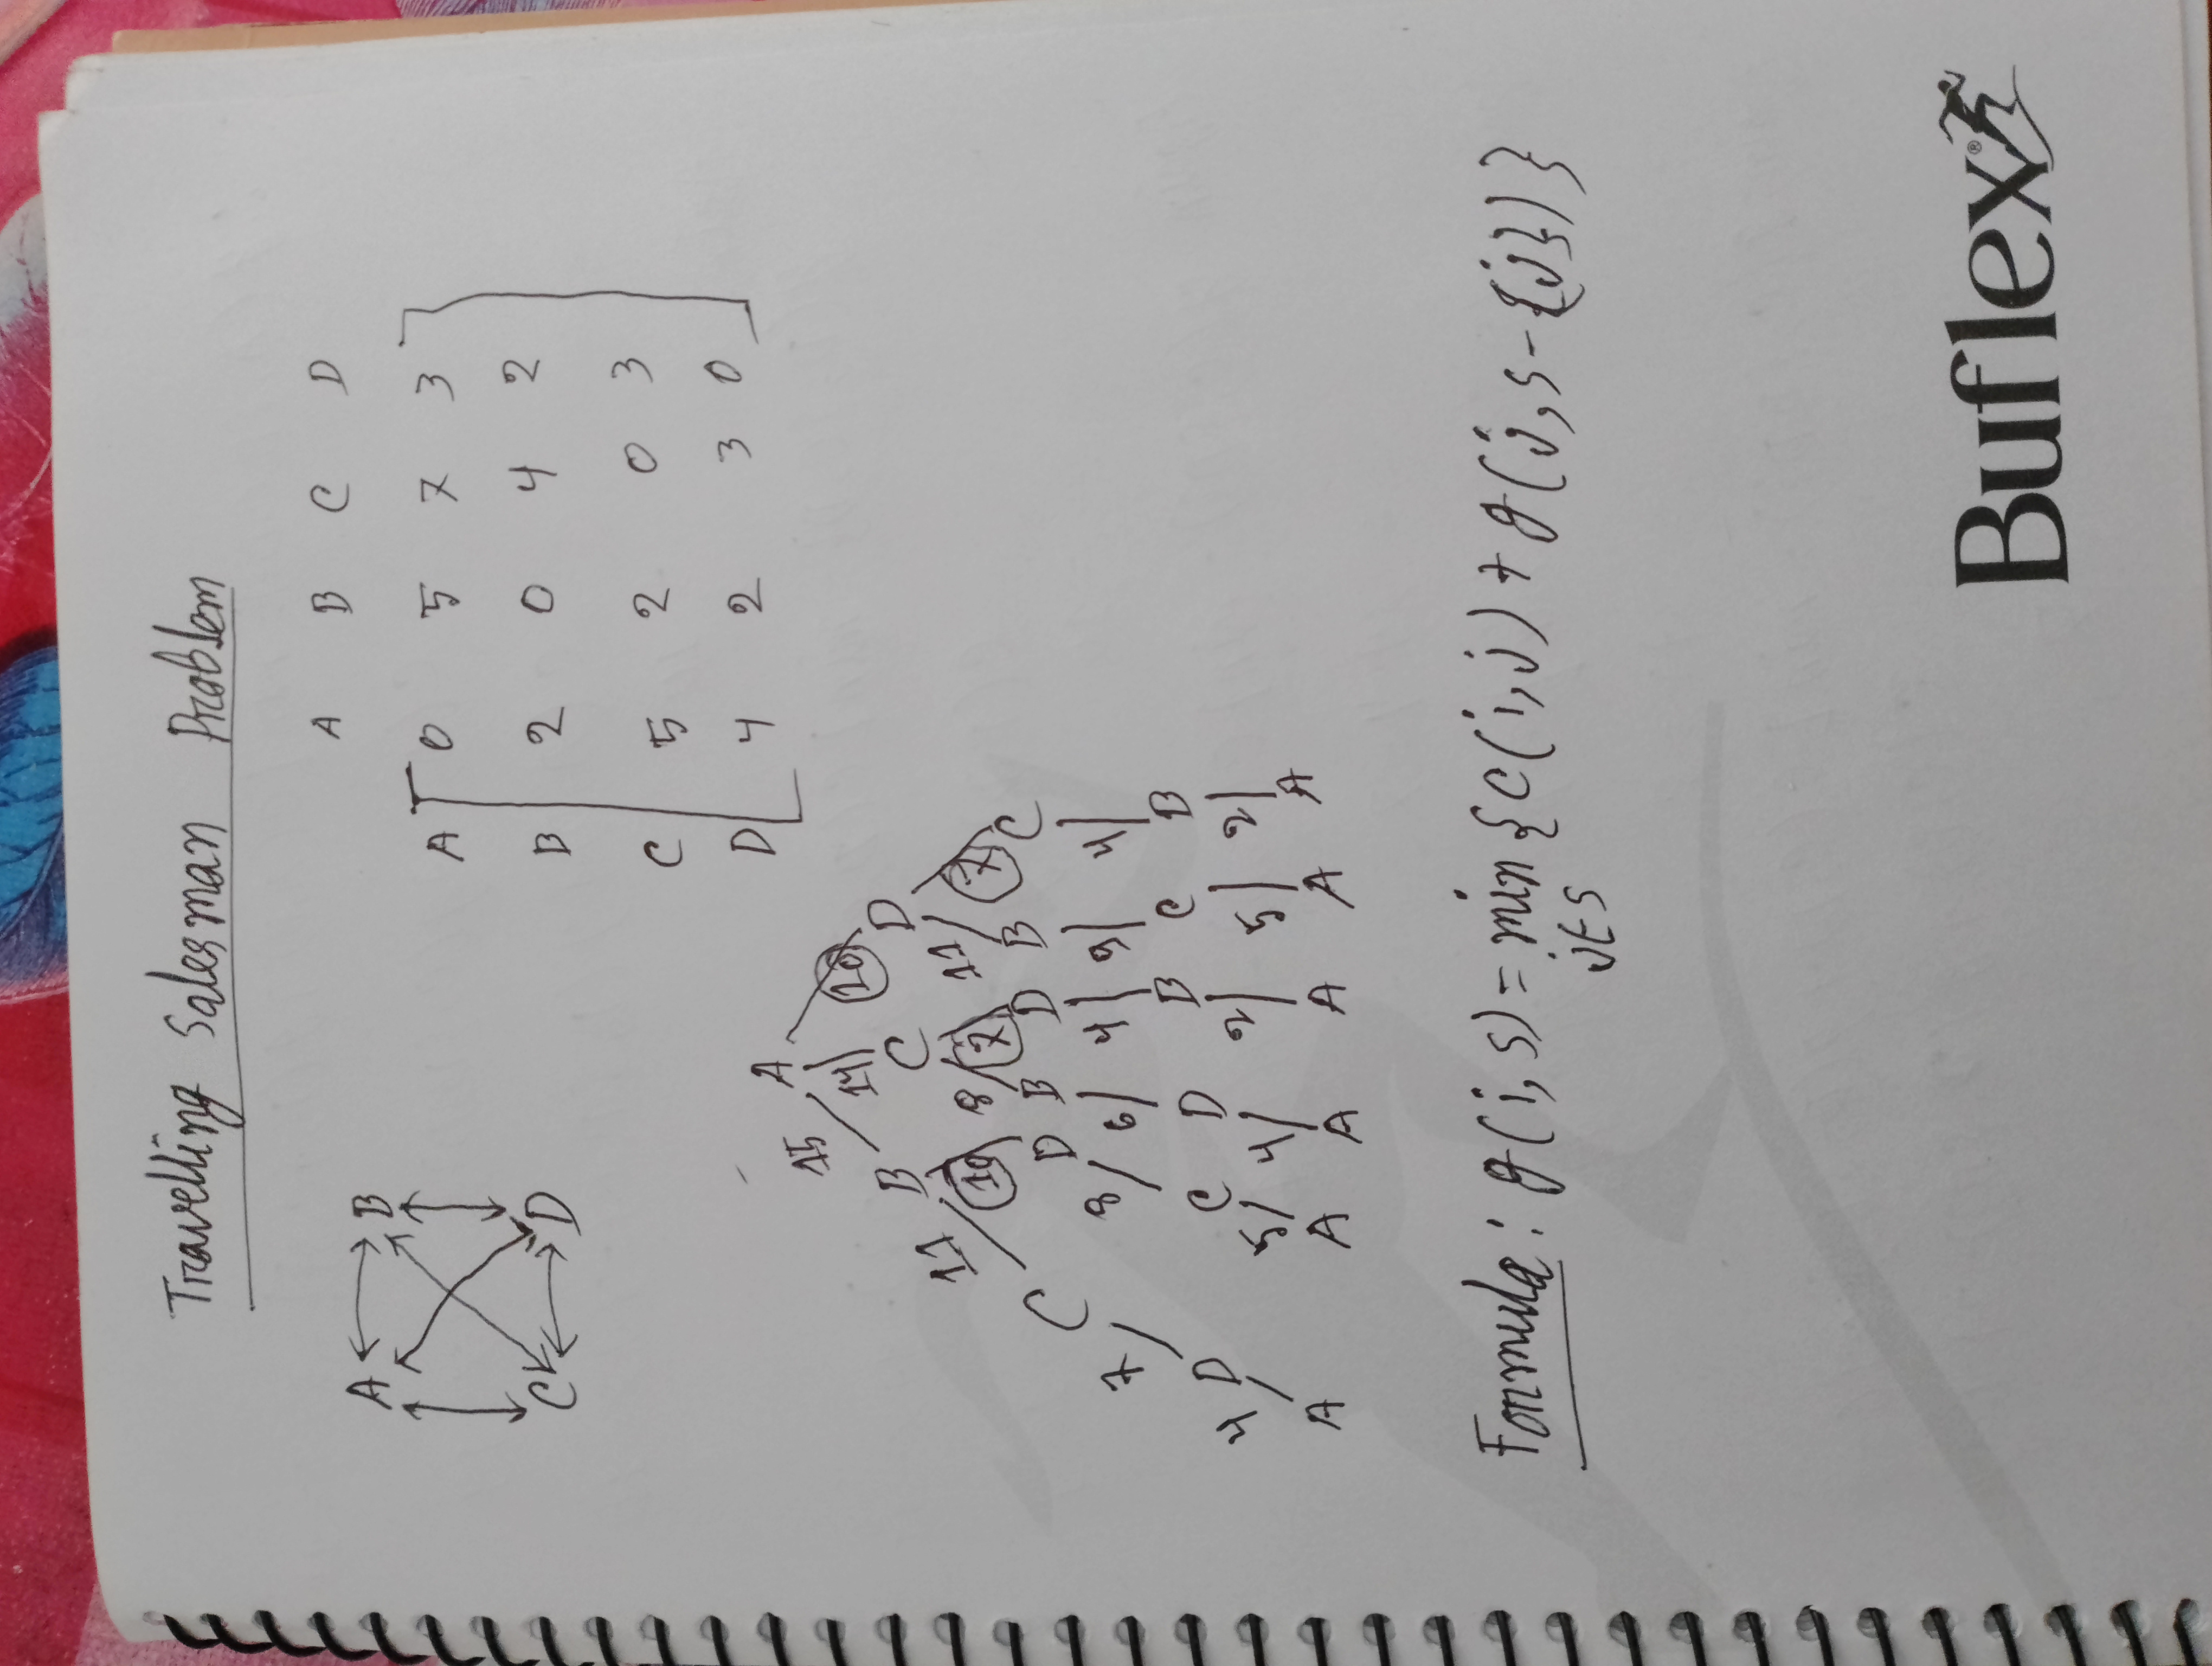 Travelling Salesman Problem
A B
C D
A B C D
A 0 5 7 3
B 2 0 4 2
C 5 2 0 3
D 4 2 3 0
A
15 14 10
B C D
11 10 8 7 11 7
C D B D B C
7 8 6 4 9 4
D C D B C B
4 5 4 2 5 2
A A A A A A
Formula: g(i,s) = min {c(i,j) + g(j,s-{j})}
j∈s
Buflex®